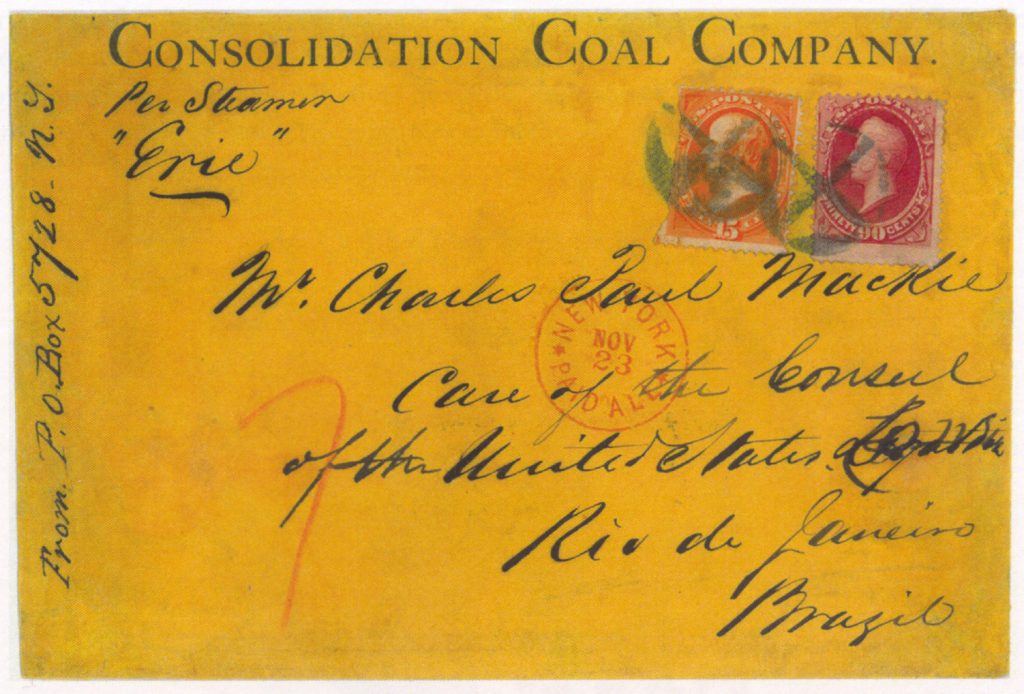 CONSOLIDATION COAL COMPANY.
Per Steamer
"Erie"
From. P.O. Box 5728 - N.Y.
U.S. POSTAGE
15
U.S. POSTAGE
NINETY 90 CENTS
Mr. Charles Paul Mackie
Care of the Consul
of the United States.
Rio de Janeiro
Brazil
NEW YORK
NOV
23
* PAID ALL
7